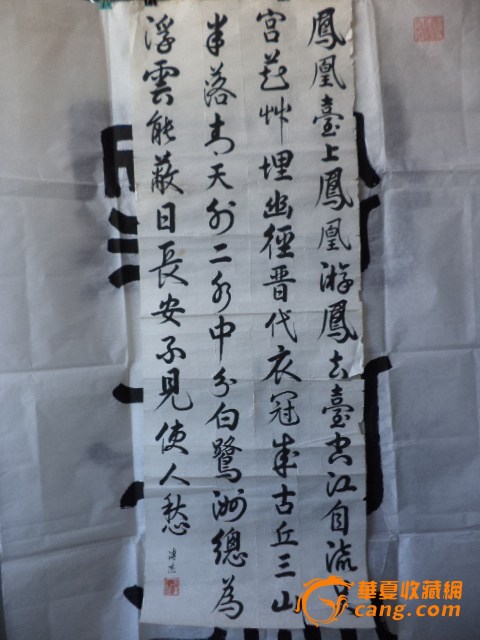 鳳凰臺上鳳凰游鳳去臺空江自流
宮花艸埋幽徑晋代衣冠成古丘三山
半落青天外二水中分白鷺洲總為
浮雲能蔽日長安不見使人愁
溥杰
華夏收藏網
cang.com